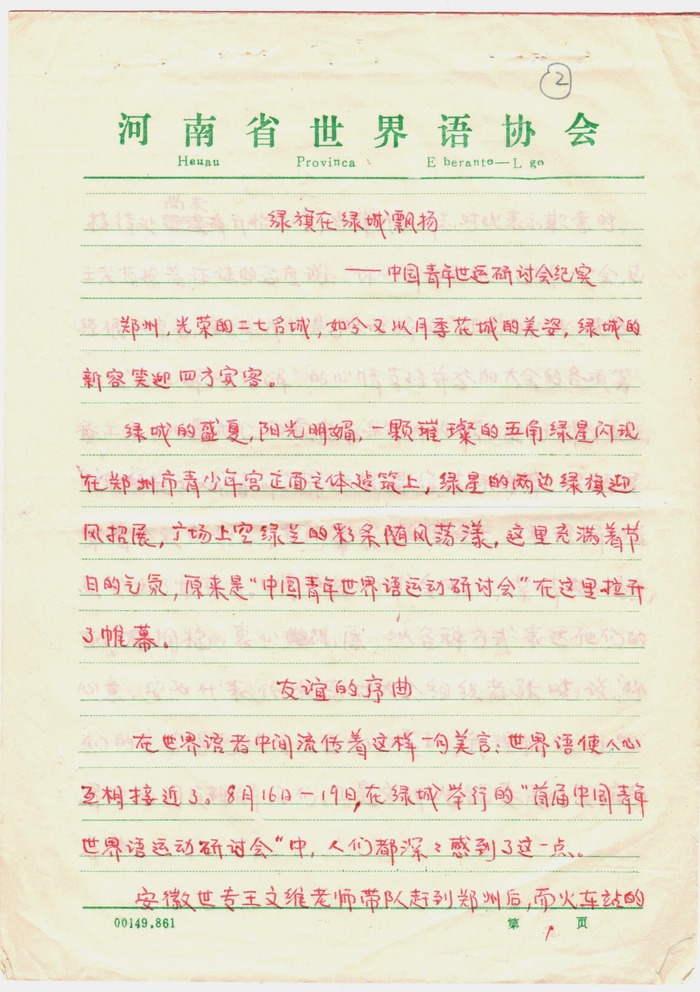 ②
河南省世界语协会
Heuau Provinca E beranto—L go
绿旗在绿城飘扬
——中国青年世运研讨会纪实
郑州,光荣的二七名城,如今又以月季花城的美姿,绿城的
新容笑迎四方宾客。
绿城的盛夏,阳光明媚,一颗璀璨的五角绿星闪现
在郑州市青少年宫正面主体建筑上,绿星的两边绿旗迎
风招展,广场上空绿兰的彩条随风荡漾,这里充满着节
日的气氛,原来是“中国青年世界语运动研讨会”在这里拉开
了帷幕。
友谊的序曲
在世界语者中间流传着这样一句美言:世界语使人心
互相接近了。8月16日—19日,在绿城举行的“首届中国青年
世界语运动研讨会”中,人们都深々感到了这一点。
安徽世专王文维老师带队赶到郑州后,而火车站的
00149.861 第 1 页